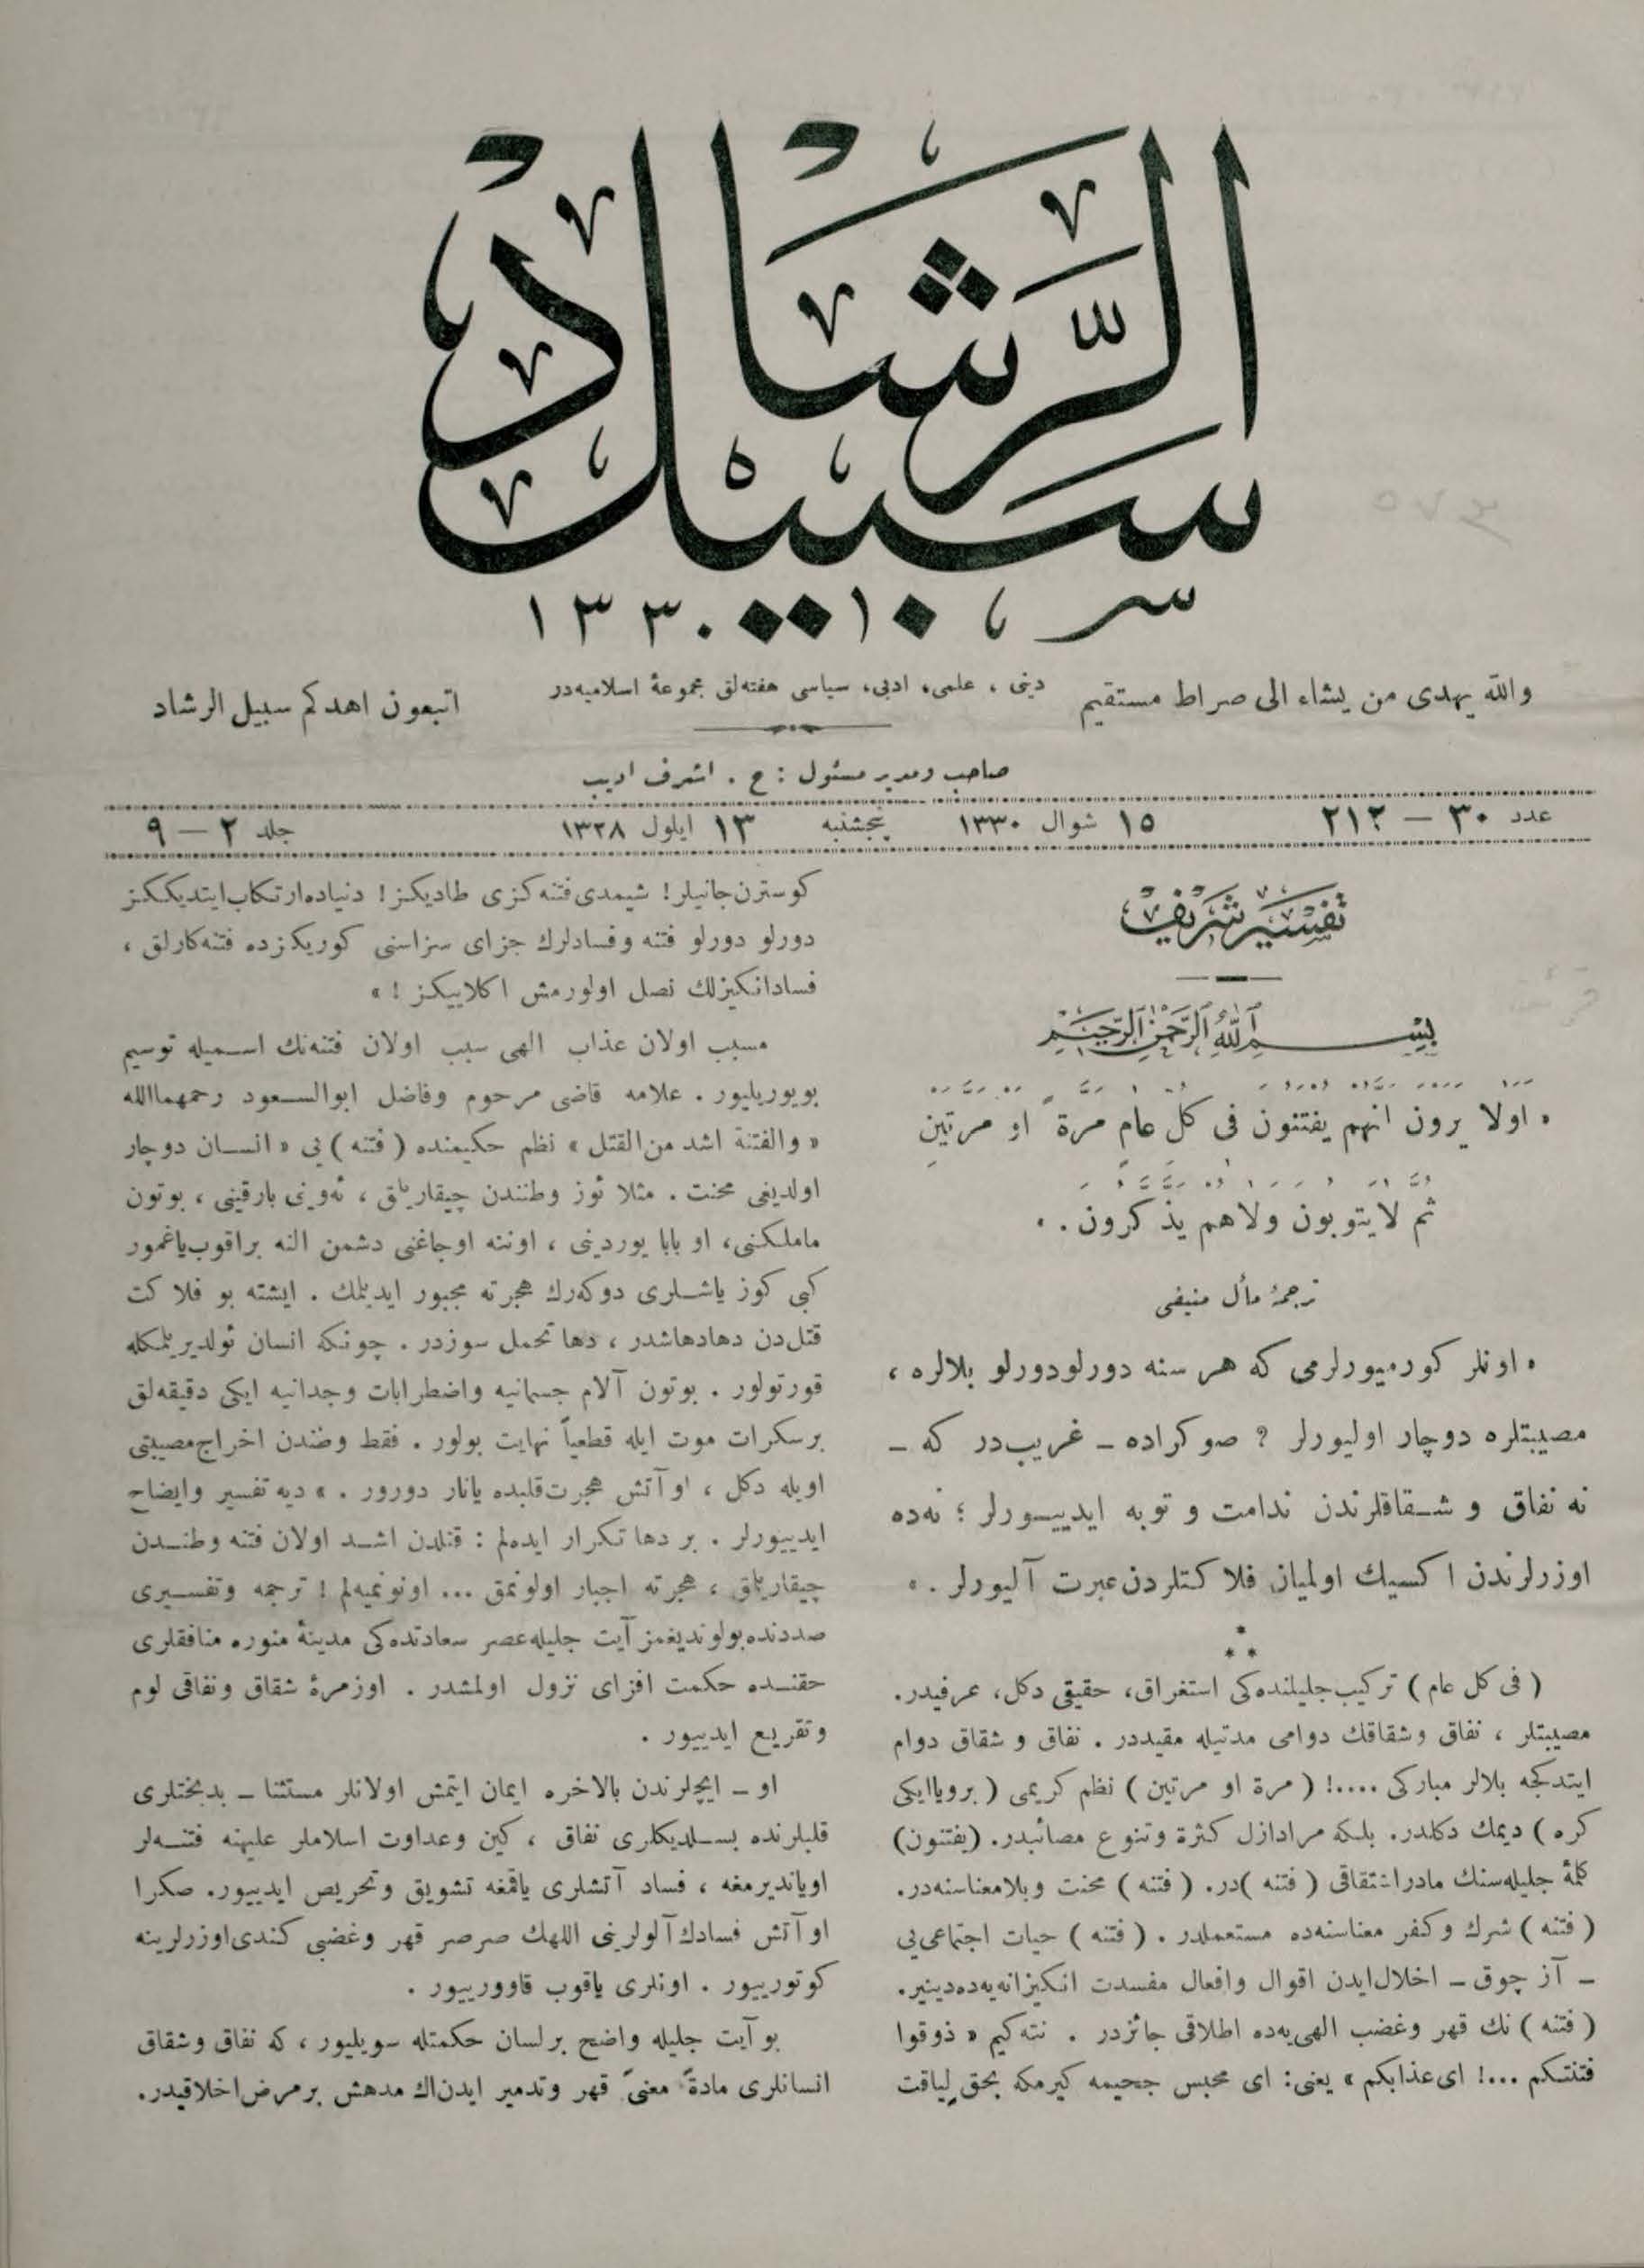 سبيل الرشاد
١٣٣٠
والله يهدى من يشاء الى صراط مستقيم
دينى ، علمى، ادبى، سياسى هفته‌لق مجموعهٔ اسلاميه‌در
اتبعون اهدكم سبيل الرشاد
صاحب ومدير مسئول : ح . اشرف اديب
عدد ٣٠ – ٢١٢
١٥ شوال ١٣٣٠ پنجشنبه ١٣ ايلول ١٣٢٨
جلد ٢ – ٩
تفسير شريف
بسم الله الرحمن الرحيم
« اولا يرون انهم يفتنون فى كل عام مرة او مرتين
ثم لايتوبون ولاهم يذكرون . »
ترجمهٔ مأل منيفى
« اونلر كورميورلرمى كه هر سنه دورلودورلو بلالره ،
مصيبتلره دوچار اوليورلر ? صوكراده ـ غريب‌در كه ـ
نه نفاق و شـقاقلرندن ندامت و توبه ايدييـورلر ؛ نه‌ده
اوزرلرندن اكسيك اولميان فلاكتلردن عبرت آليورلر . »
***
( فى كل عام ) تركيب‌جليلنده‌كى استغراق، حقيقى دكل، عرفيدر.
مصيبتلر ، نفاق وشقاقك دوامى مدتيله مقيددر . نفاق و شقاق دوام
ايتدكجه بلالر مباركى ....! ( مرة او مرتين ) نظم كريمى ( برويا‌ايكى
كره ) ديمك دكلدر. بلكه مرادازل كثرة وتنوع مصائبدر. (يفتنون)
كلهٔ جليله‌سنك مادر‌اشتقاقى ( فتنه )در. ( فتنه ) محنت وبلامعناسنه‌در.
( فتنه ) شرك وكفر معناسنه‌ده مستعملدر . ( فتنه ) حيات اجتماعى‌يى
ـ آز چوق ـ اخلال‌ايدن اقوال وافعال مفسدت انكيزانه‌يه‌ده‌دينير.
( فتنه ) نك قهر وغضب الهى‌يه‌ده اطلاقى جائزدر . نته‌كيم « ذوقوا
فتنتكم ...! اى‌عذابكم » يعنى: اى محبس جحيمه كيرمكه بحق لياقت
كوسترن‌جانيلر! شيمدى‌فتنه‌كزى طاديكز! دنياده‌ارتكاب‌ايتديككز
دورلو دورلو فتنه وفسادلرك جزاى سزاسنى كوريكزده فتنه‌كارلق ،
فسادانكيزلك نصل اولورمش اكلاييكز ! »
مسبب اولان عذاب الهى سبب اولان فتنه‌نك اسـميله توسيم
بويوريليور . علامه قاضى مرحوم وفاضل ابوالسـعود رحمهماالله
« والفتنة اشد من‌القتل » نظم حكيمنده ( فتنه ) يى « انسـان دوچار
اولديغى محنت . مثلا ئوز وطنندن چيقارلمق ، ئه‌وينى بارقينى ، بوتون
ماملكنى، او بابا يوردينى ، اوننه اوجاغنى دشمن النه براقوب‌ياغمور
كبى كوز ياشـلرى دوكه‌رك هجرته مجبور ايديلمك . ايشته بو فلاكت
قتل‌دن دهادهاشدر ، دها تحمل سوزدر . چونكه انسان ئولديريلمكله
قورتولور . بوتون آلام جسمانيه واضطرابات وجدانيه ايكى دقيقه‌لق
برسكرات موت ايله قطعياً نهايت بولور . فقط وطندن اخراج‌مصيبتى
اويله دكل ، او آتش هجرت‌قلبده يانار دورور . » ديه تفسير وايضاح
ايدييورلر . بر دها تكرار ايده‌لم : قتلدن اشـد اولان فتنه وطنـدن
چيقارلمق ، هجرته اجبار اولونمق ... اونوتميه‌لم ! ترجمه وتفسـيرى
صددنده‌بولونديغمز آيت جليله‌عصر سعادتده‌كى مدينهٔ منوره منافقلرى
حقنـده حكمت افزاى نزول اولمشدر . اوزمرهٔ شقاق ونفاقى لوم
وتقريع ايدييور .
او ـ ايچلرندن بالاخره ايمان ايتمش اولانلر مستثنا ـ بدبختلرى
قلبلرنده بسـلديكلرى نفاق ، كين وعداوت اسلاملر عليهنه فتنـه‌لر
اوياندیرمغه ، فساد آتشلرى ياقمغه تشويق وتحريص ايدييور. صكرا
او آتش فسادك آلولرينى اللهك صرصر قهر وغضبى كندى‌اوزرلرينه
كوتورييور . اونلرى ياقوب قاوورييور .
بو آيت جليله واضح برلسان حكمتله سويليور ، كه نفاق وشقاق
انسانلرى مادةً معنىً قهر وتدمير ايدن‌اك مدهش برمرض‌اخلاقيدر.